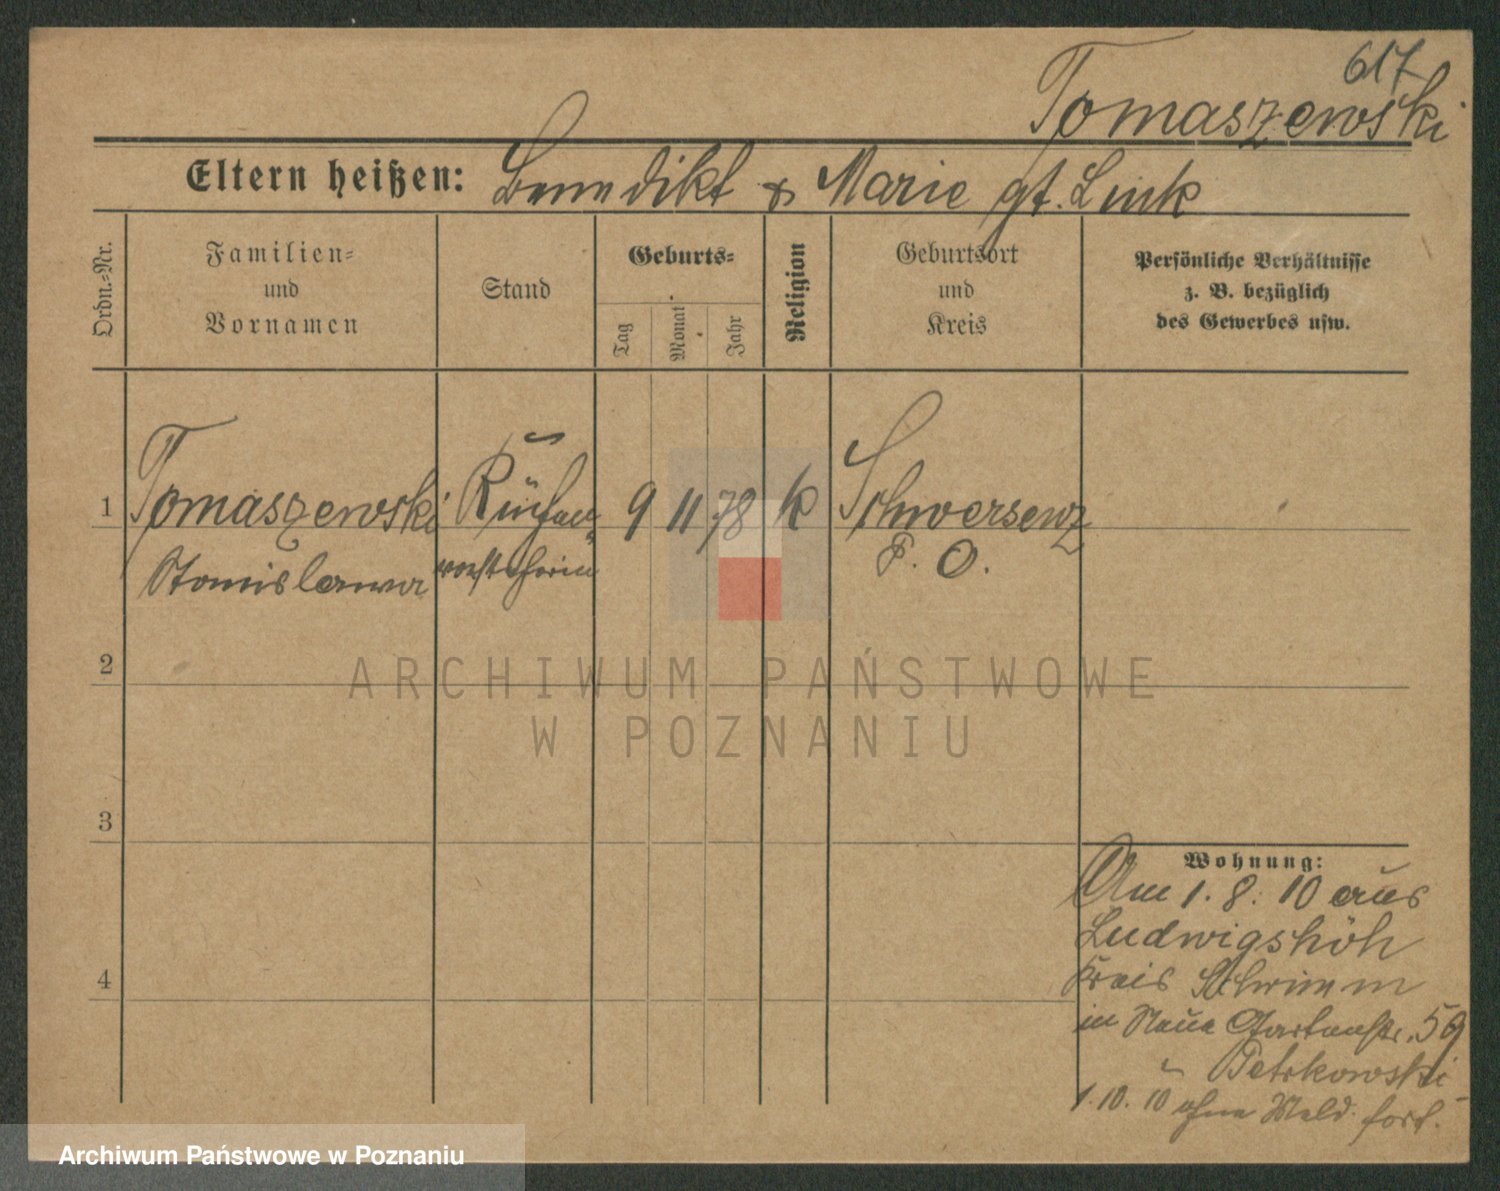 617
Tomaszewski
Eltern heißen: Benedikt & Marie gt. Link
Ordn.-Nr.
Familien-
und
Vornamen
Stand
Geburts-
Tag
Monat
Jahr
Religion
Geburtsort
und
Kreis
Persönliche Verhältnisse
z. B. bezüglich
des Gewerbes usw.
1 Tomaszewski Küchen- 9 11 78 k Schwersenz
Stanislawa P. O.
2
ARCHIWUM PAŃSTWOWE
W POZNANIU
3
Wohnung:
Am 1. 8. 10 aus
Ludwigshöh
4
Kreis Schrimm
in Neue Gartenstr. 59
Petrkowski
1. 10. 10 ohne Meld. fort.
Archiwum Państwowe w Poznaniu